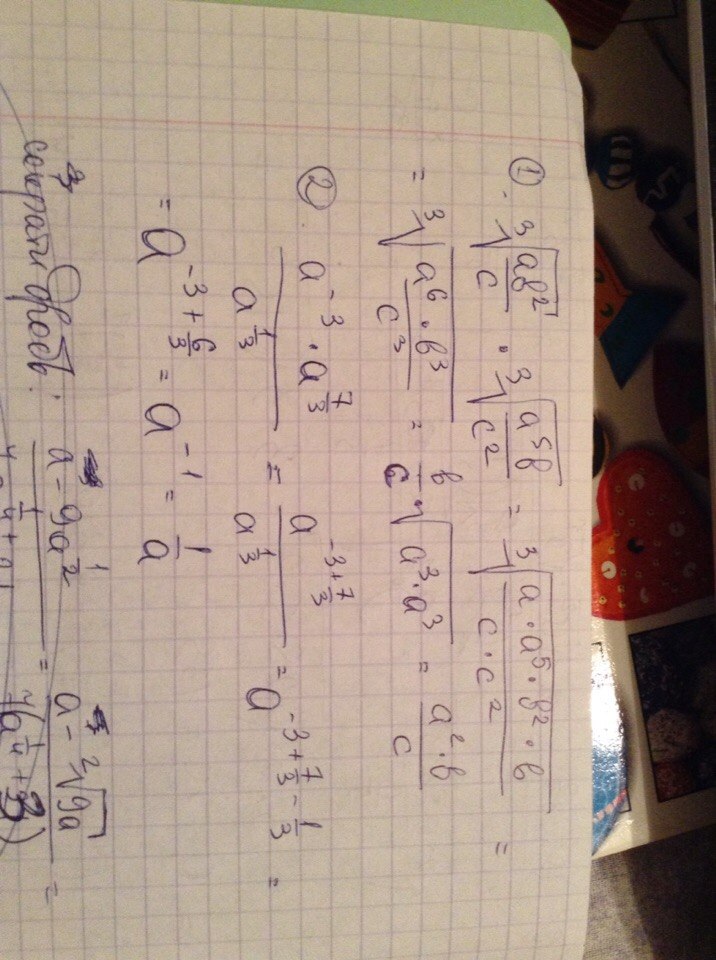 ① ∛(ab²/c) · ∛(a⁵b/c²) = ∛(a·a⁵·b²·b / c·c²) =
= ∛(a⁶·b³ / c³) = b/c ∛(a³·a³) = a²·b / c
② a⁻³ · a^(7/3) / a^(1/3) = a^(-3+7/3) / a^(1/3) = a^(-3+7/3-1/3) =
= a^(-3+6/3) = a⁻¹ = 1/a
сократи дробь: a - 9a^(1/2) / = a - ²√9a / 4(a^(1/4) + 3) =